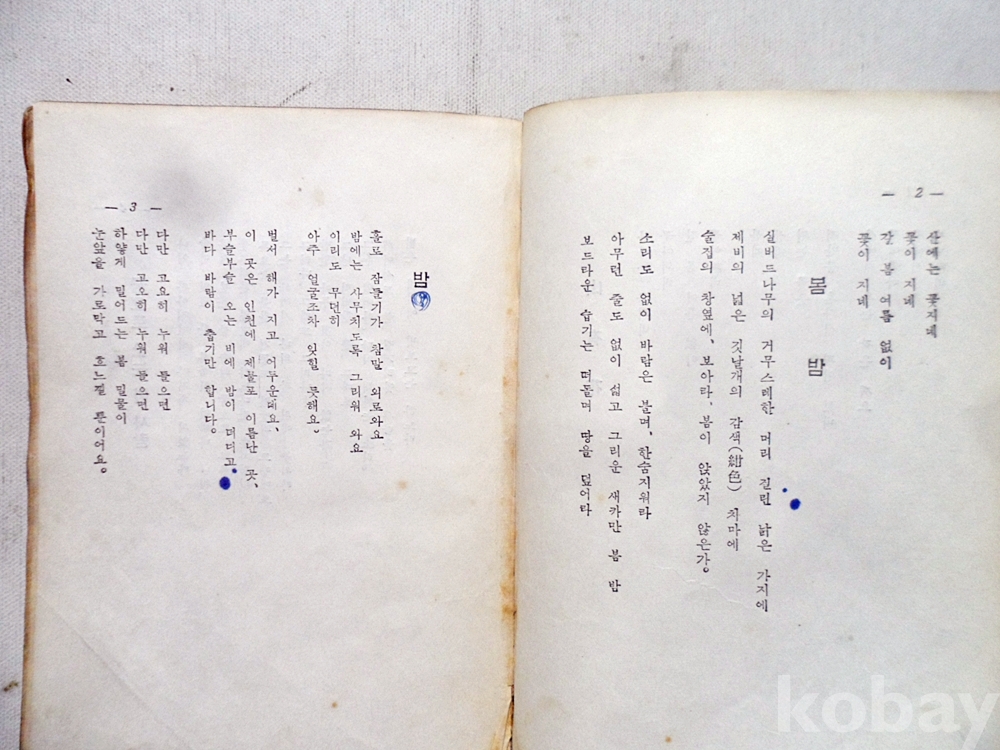 — 2 —
산에는 꽃지네
꽃이 지네
갈 봄 여름 없이
꽃이 지네
봄 밤
실버드나무의 거무스레한 머리 길린 낡은 가지에
제비의 넓은 깃날개의 감색(紺色) 치마에
술집의 창옆에, 보아라, 봄이 앉았지 않은가。
소리도 없이 바람은 불며, 한숨지워라
아무런 줄도 없이 섧고 그리운 새카만 봄 밤
보드라운 습기는 떠돌며 땅을 덮어라
— 3 —
밤
홀로 잠들기가 참말 외로와요
밤에는 사무치도록 그리워 와요
이리도 무던히
아주 얼굴조차 잊힐 듯해요。
벌서 해가 지고 어두운데요、
이 곳은 인천에 제물포 이름난 곳、
부슬부슬 오는 비에 밤이 더디고
바다 바람이 춥기만 합니다。
다만 고요히 누워 들으면
다만 고요히 누워 들으면
하얗게 밀어드는 봄 밀물이
눈앞을 가로막고 흐느낄 뿐이어요。
kobay